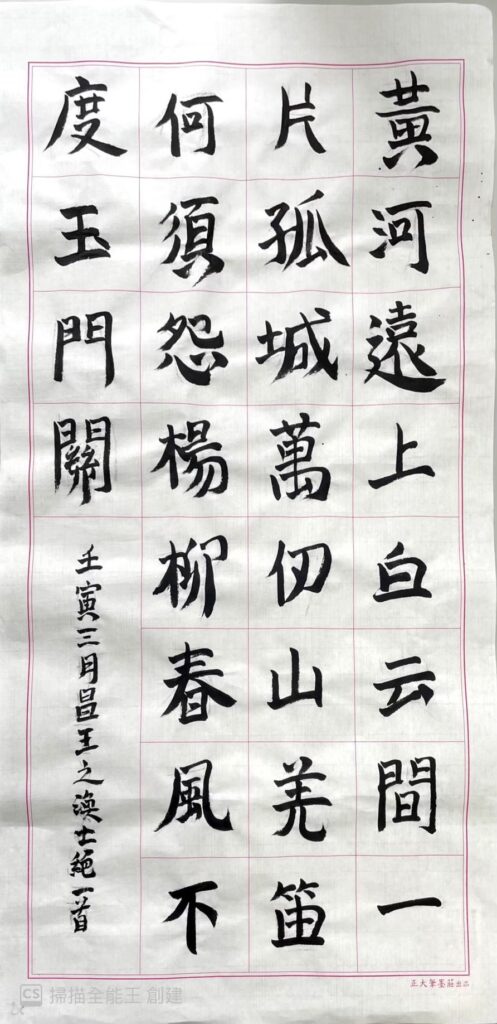 黃河遠上白云間一
片孤城萬仞山羌笛
何須怨楊柳春風不
度玉門關
壬寅三月昌王之渙士絕一首
正大筆墨莊出品
CS 掃描全能王 創建